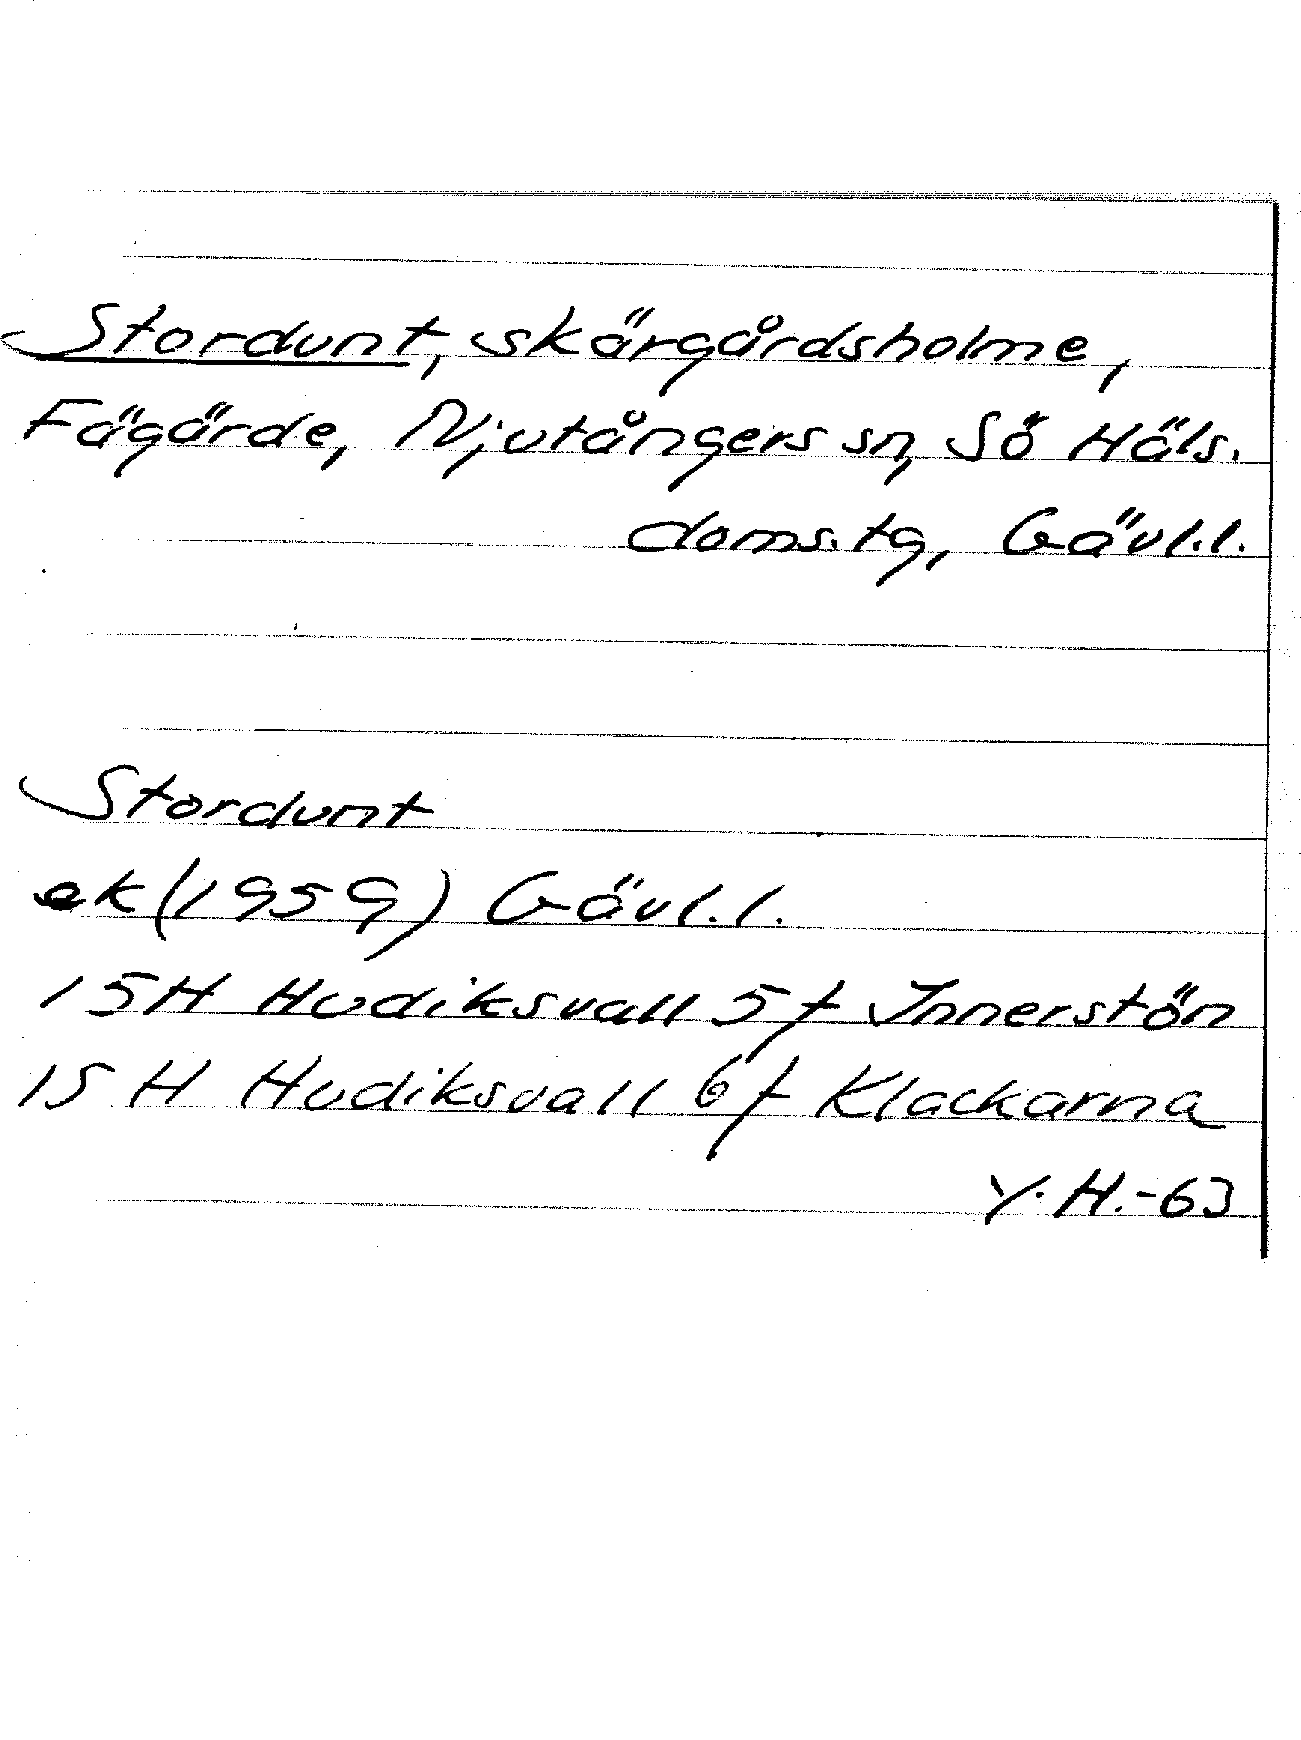 Stordunt, skärgårdsholme,
Fägärde, Njutångers sn, Sö Häls.
doms.tg, Gävl.l.
Stordunt
ek (1959) Gävl.l.
15H Hudiksvall 5f Innerstön
15 H Hudiksvall 6f Klackarna
Y.H.-63